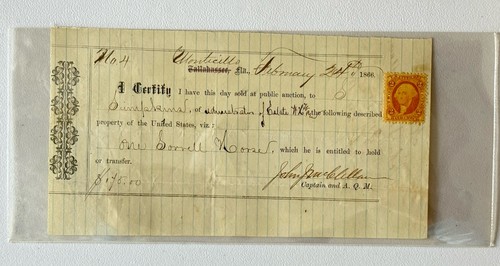 No 4 Monticello
Tallahassee, Fla., February 24th 1866.
I Certify I have this day sold at public auction, to
of administrator of Estate the following described
property of the United States, viz:
One Sorrell Horse, which he is entitled to hold
or transfer.
$175.00 John
Captain and A. Q. M.